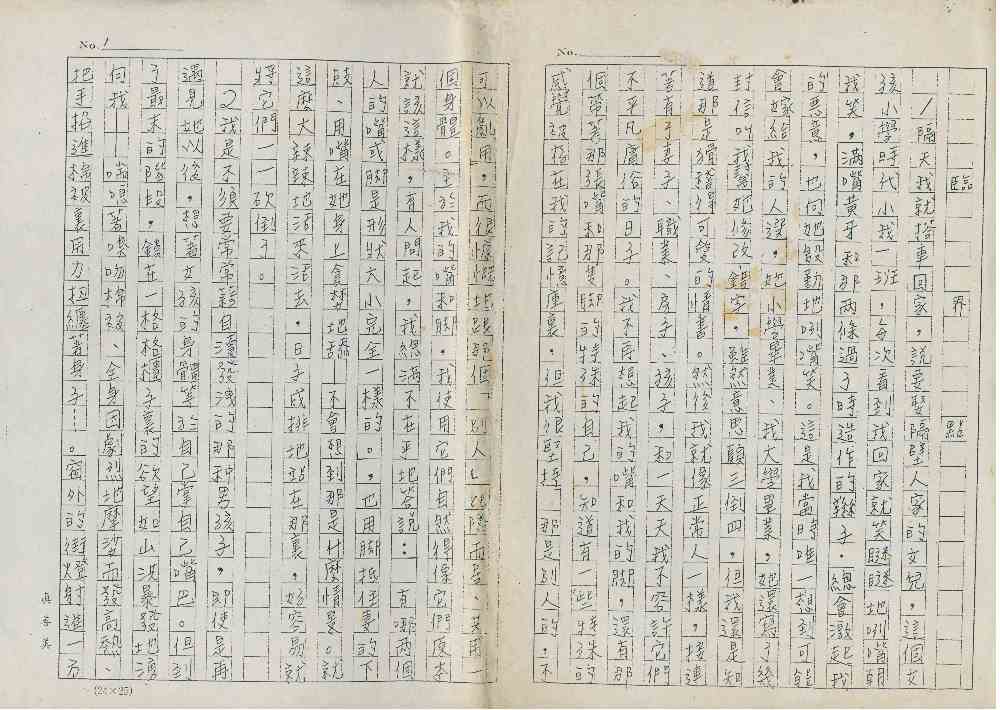 No.
臨界點
1隔天我就搭車回家，說要娶隔壁人家的女兒，這個女
孩小學時代小我一班，每次看到我回家就笑瞇瞇地咧嘴朝
我笑，滿嘴黃牙和那兩條過子時造作的辮子，總會激起我
的惡意，也向她毀動地咧嘴笑。這是我當時唯一想到可能
會嫁給我的人選，她小學畢業、我大學畢業，她還寫了幾
封信叫我替她修改錯字，雖然意思顛三倒四，但我還是知
道那是猾稽得可愛的情書。然後我就像正常人一樣，接連
著有了妻子、職業、房子、孩子，和一天天我不容許它們
不平凡庸俗的日子。我不再想起我的嘴和我的腳，還有那
個帶著那張嘴和那隻腳的特殊的自己，知道有一些特殊的
感覺被擋在我的記憶裡裏，但我很堅持，那是別人的，不
No. 1
可以亂用，而很慷慨地跟那個「別人」
個身體。至於我的嘴和腳，我使用它們自然得像它們原本
就該這樣，有人問起，我總滿不在乎地答說：「有哪兩個
人的嘴或腳是形狀大小完全一樣的。」也用腳抵住妻的下
肢、用嘴在她身上會焚地舔，不會想到那是什麼情景。就
這麼大辣辣地活來活去，日子成排地站在那裏，好容易就
將它們一一砍倒了。
2我是不須要常常藉自瀆發洩的那种男孩子，即使是再
遇見她以後，想著女孩的身體舉於自己掌自己嘴巴。但到
了最末的階段，鎖在一格格櫃子裏的欲望如山洪暴發地湧
向我，喘噓著噤吻棉被、全身因劇烈地摩娑而發高熱、
把手掐進棉被裏用力扭纏著身子……。窗外的街燈射進一方
(24×25)